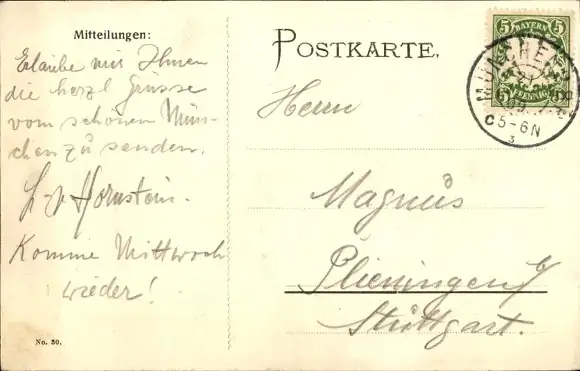 Mitteilungen:
Erlaube mir Ihnen
die herzl Grüsse
vom schönen Mün-
chen zu senden.
L. v Hornstein.
Komme Mittwoch
wieder!
No. 50.
POSTKARTE.
Herrn
Magnus
Plieningen b/
Stuttgart.
5 BAYERN 5
PFENNIG
MÜNCHEN
5-6N
3